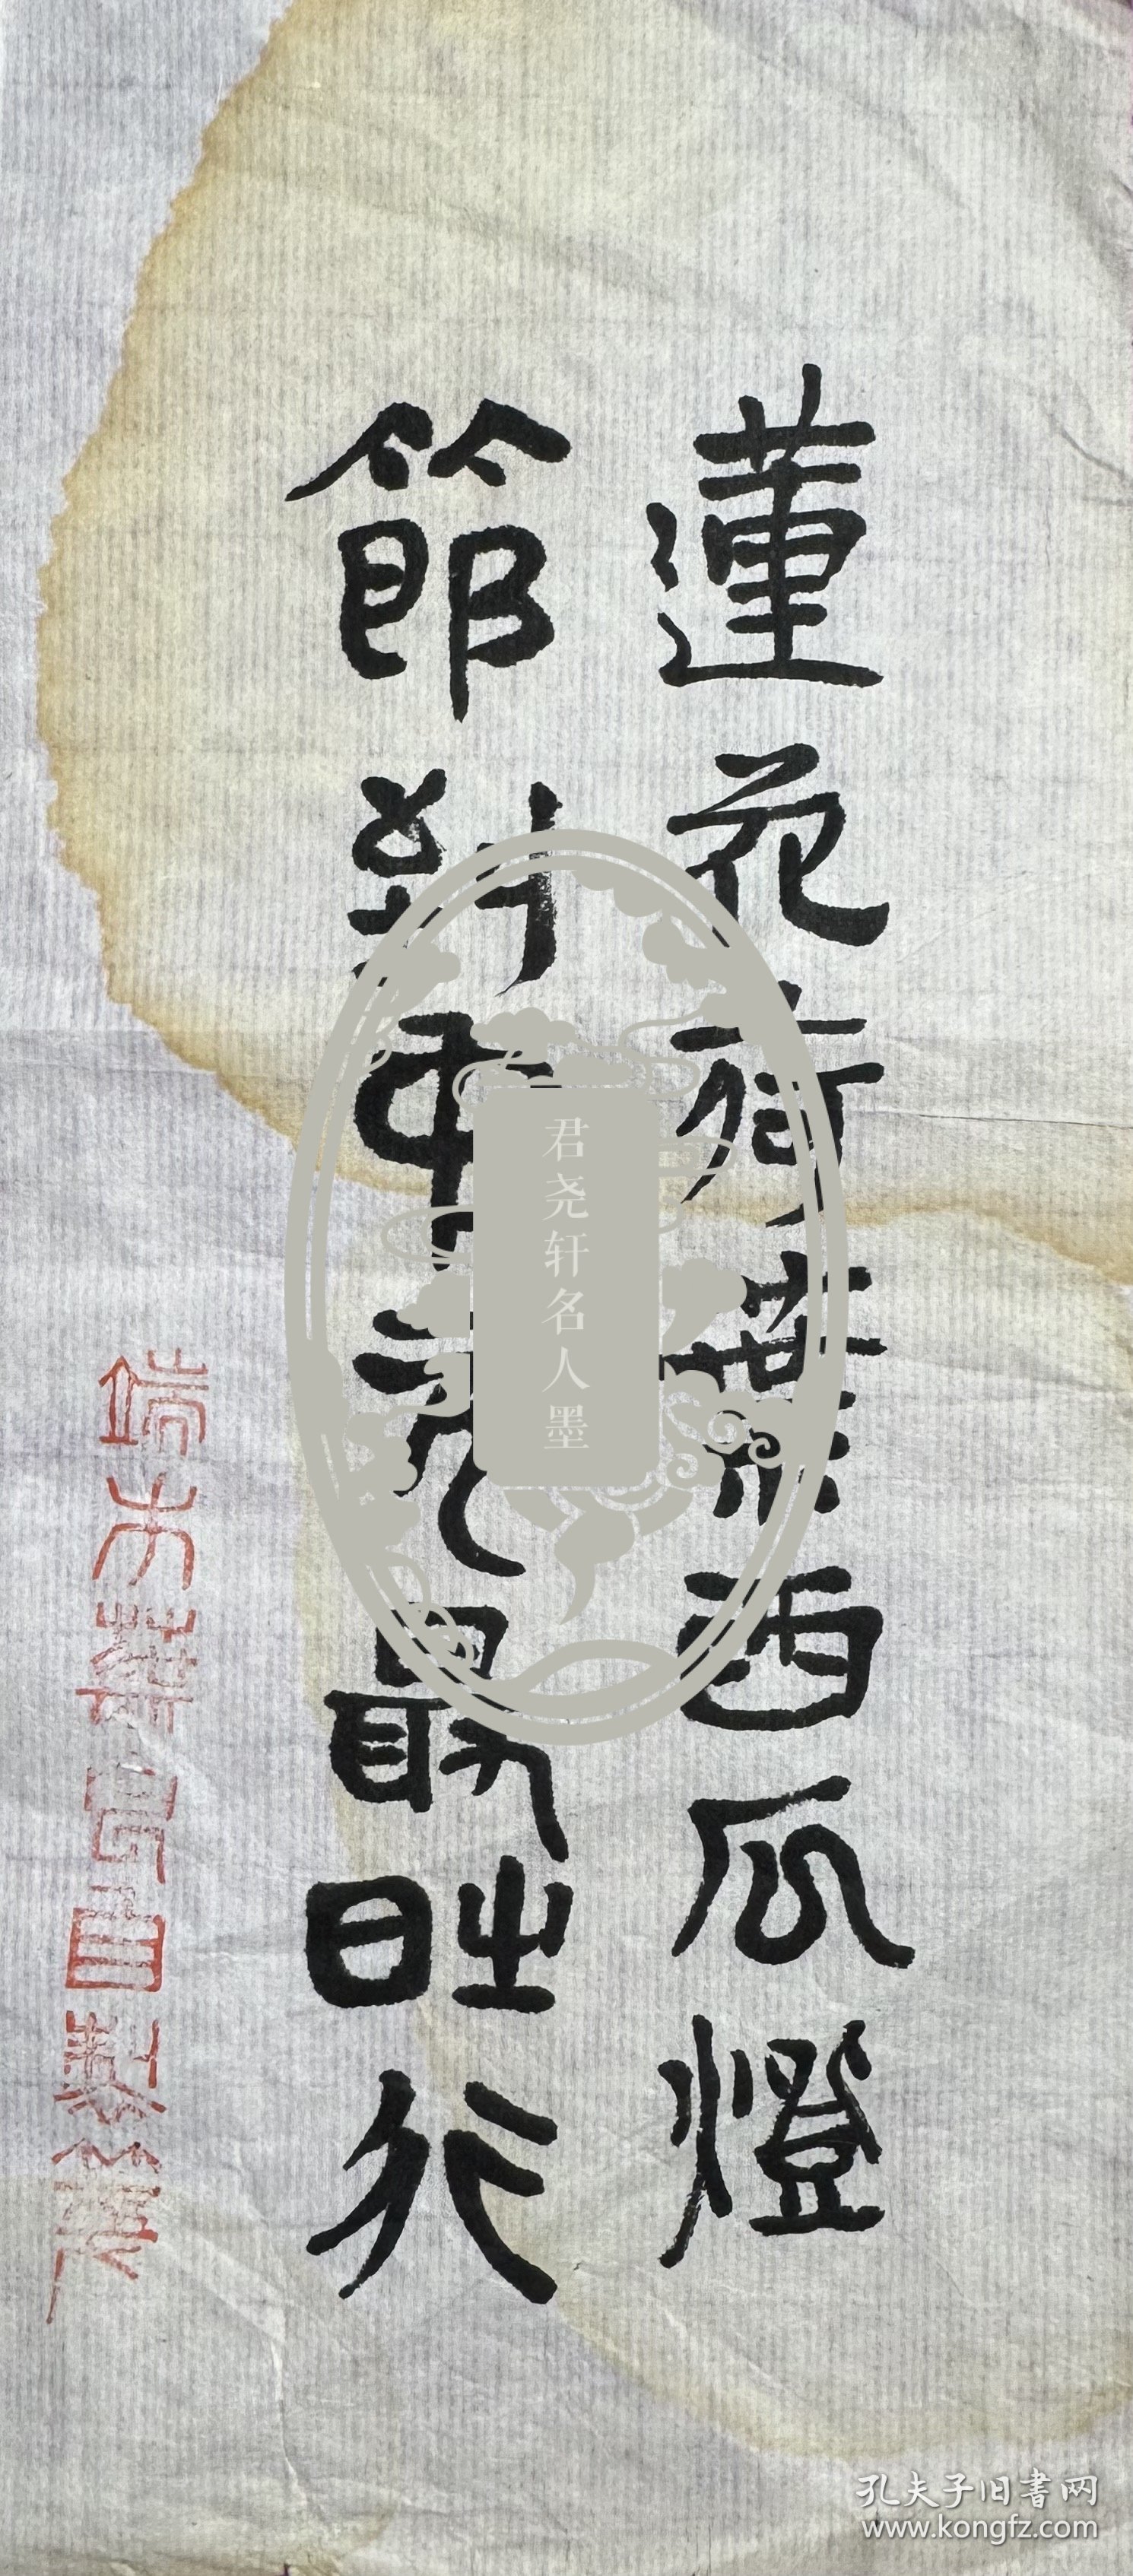 蓮花荷葉西瓜燈
節到中元最時行
端木蕻良自製箋
君尧轩名人墨
孔夫子旧書网
www.kongfz.com